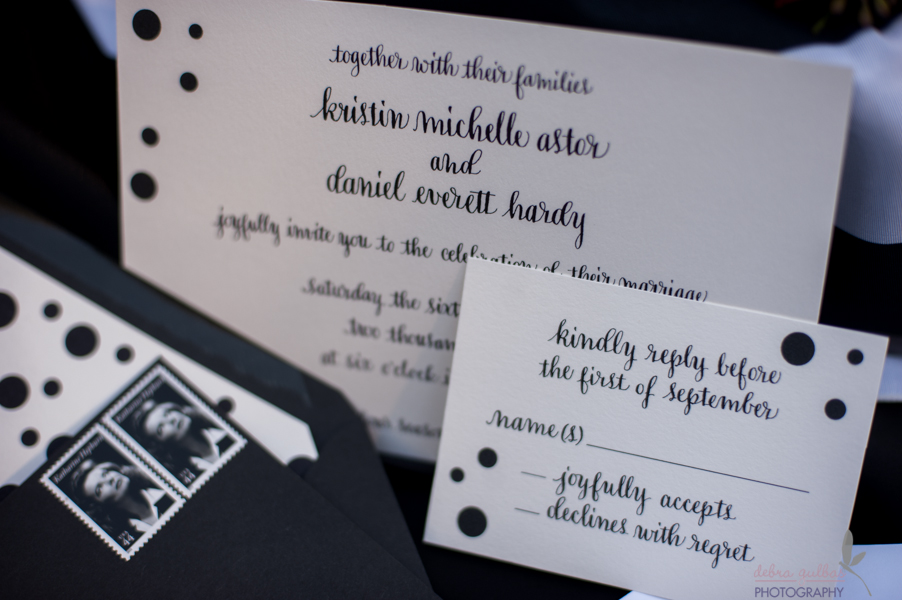 together with their families
kristin michelle astor
and
daniel everett hardy
joyfully invite you to the celebration of their marriage
saturday the sixt
two thousan
at six o'clock i
kindly reply before
the first of september
name(s)
joyfully accepts
declines with regret
USA
44
USA
44
debra gulba
PHOTOGRAPHY